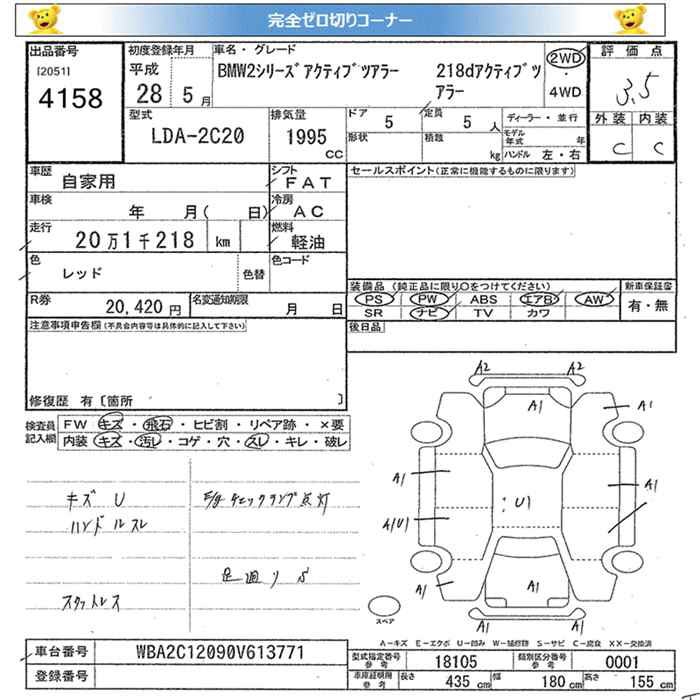 完全ゼロ切りコーナー
出品番号
[2051]
4158
初度登録年月
平成
28 5月
車名・グレード
BMW2シリーズアクティブツアラー 218dアクティブツアラー
2WD
・
4WD
評価点
3.5
外装 内装
C C
型式
LDA-2C20
排気量
1995
CC
ドア
5
定員
5 人
形状
積載
kg
ディーラー・並行
モデル年式 年
ハンドル 左・右
車歴
自家用
シフト
FAT
車検
年 月( 日)
冷房
AC
走行
20万1千218 km
燃料
軽油
色
レッド
色替
色コード
R券
20,420 円
名変通知期限
月 日
セールスポイント(正常に機能するものに限ります)
装備品(純正品に限り○をつけてください)
PS PW ABS エアB AW
SR ナビ TV カワ
新車保証書
有・無
後日品
注意事項申告欄(不具合内容等は具体的に記入して下さい)
修復歴 有〔箇所 〕
検査員記入欄
FW キズ・飛石・ヒビ割・リペア跡・×要
内装 キズ・汚レ・コゲ・穴・スレ・キレ・破レ
キズ U
ハンドルスレ
スタットレス
E/g チェックランプ点灯
足廻りS
A2 A2
A1
A1
A1
A1
A1U1
U1
A1
A1
A1
スペア
A-キズ E-エクボ U-凹み W-補修跡 S-サビ C-腐食 XX-交換済
車台番号
WBA2C12090V613771
登録番号
型式指定番号 参考
18105
類別区分番号 参考
0001
車庫証明用 参考
長さ 435 cm
幅 180 cm
高さ 155 cm